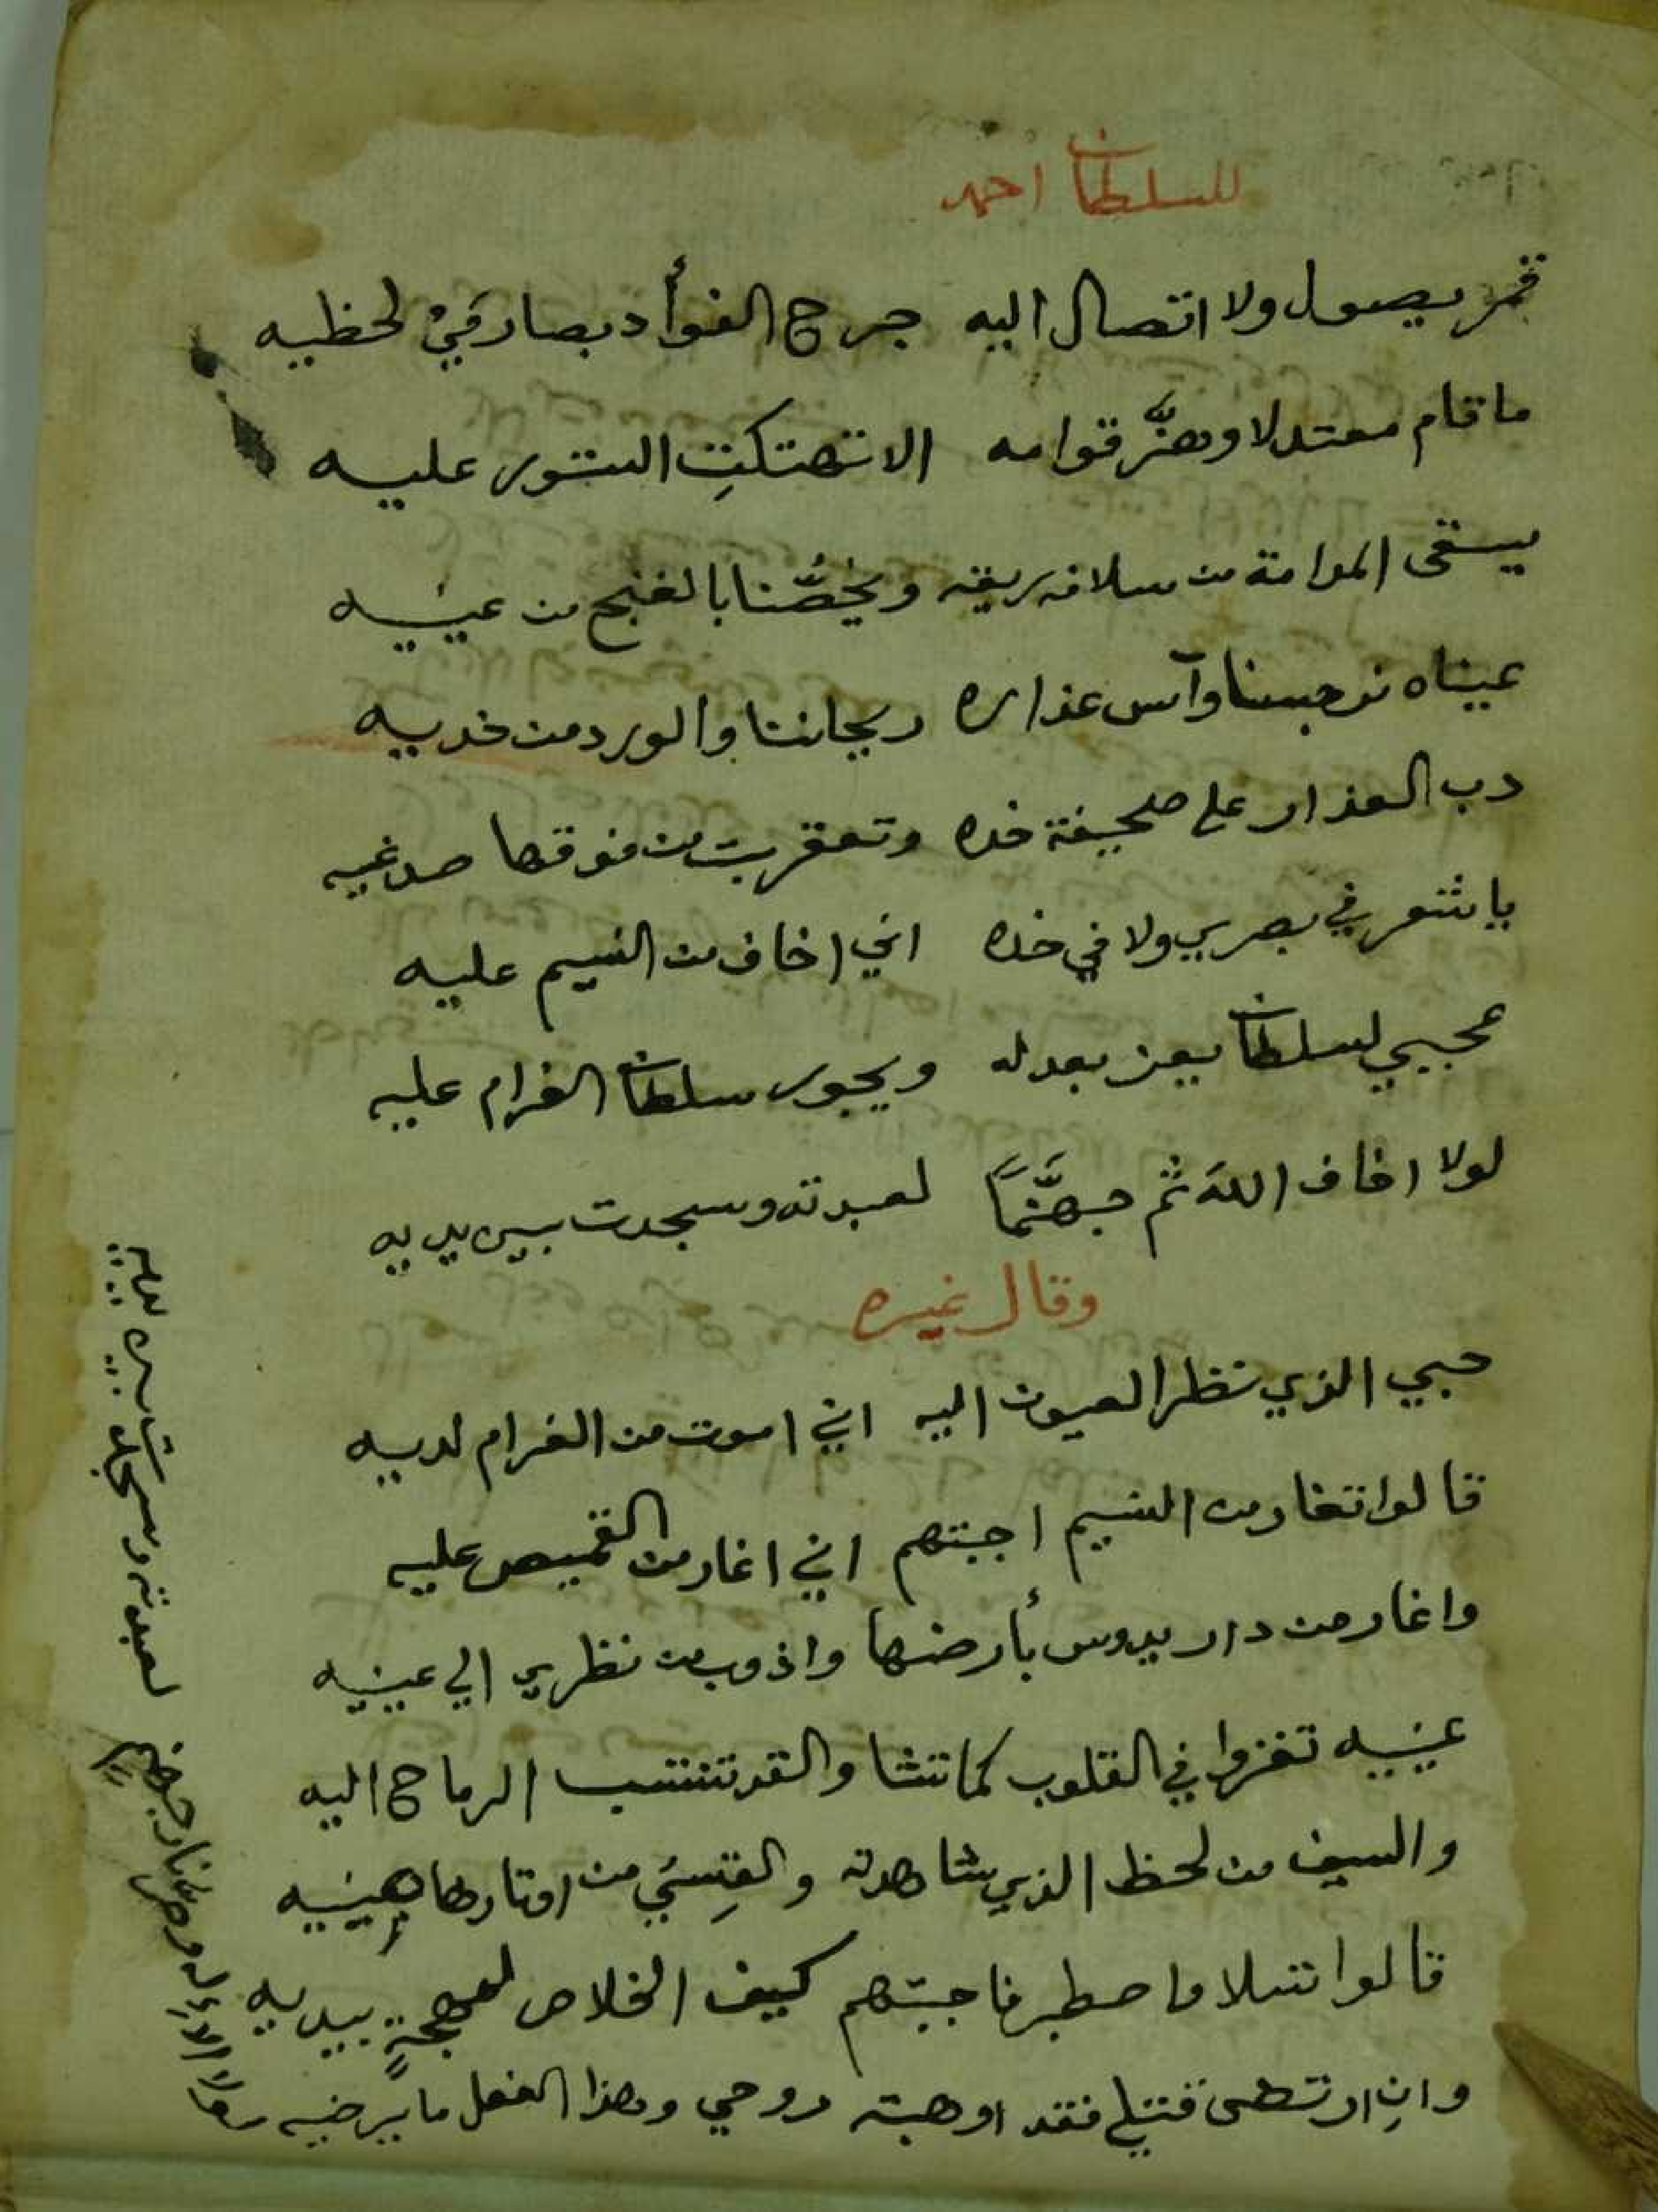 للسلطان احمد
قمر يصول ولا اتصال اليه جرح الفؤأد بصارمَيْ لحظيه
ما قام معتدلا وهزَّ قوامه الا تهتكتِ الستور عليه
يسقى المدامة من سلافه ريقه ويخصُّنا بالغنج من عينيه
عيناه نرجسنا وآس عذاره ريحاننا والورد من خديه
دب العذار على صحيفة خده وتعقربت من فوقها صدغيه
يا شعر في بصري ولا في خده اني اخاف من النسيم عليه
عجبي لسلطان يعز بعدله ويجور سلطان الغرام عليه
لولا اخاف اللّه ثم جهنَّماً لعبدته وسجدت بين يديه
وقال غيره
حبي الذي نظر العيون اليه اني اموت من الغرام لديه
قالوا تغار من النسيم اجبتهم اني اغار من القميص عليه
واغار من دار يدوس بأرضها واذوب من نظري الي عينيه
عينيه تغزوا في القلوب كما تشا والقد تنتسب الرماح اليه
والسيف من لحظ الذي شاهدته والقِسيْ من اوتارها
قالوا تسلا واصطبر فاجبتهم كيف الخلاص لمهجةٍ بيديه
وان ارتضى قتلي فقد اوهبته روحي وهذا الفعل ما يرضيه
لعبدته وسجدت بين يديه